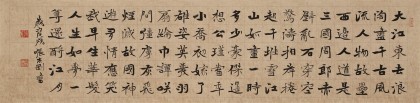 大江東去浪
淘盡千古風
流人物故壘
西邊人道是
三國周郎赤
壁亂石穿空
驚濤拍岸捲
起千堆雪江
山如畫一時
多少豪傑遙
想公瑾當年
小喬初嫁了
雄姿英發羽
扇綸巾談笑
間檣櫓灰飛
煙滅故國神
遊多情應笑
我早生華髮
人生如夢一
尊還酹江月